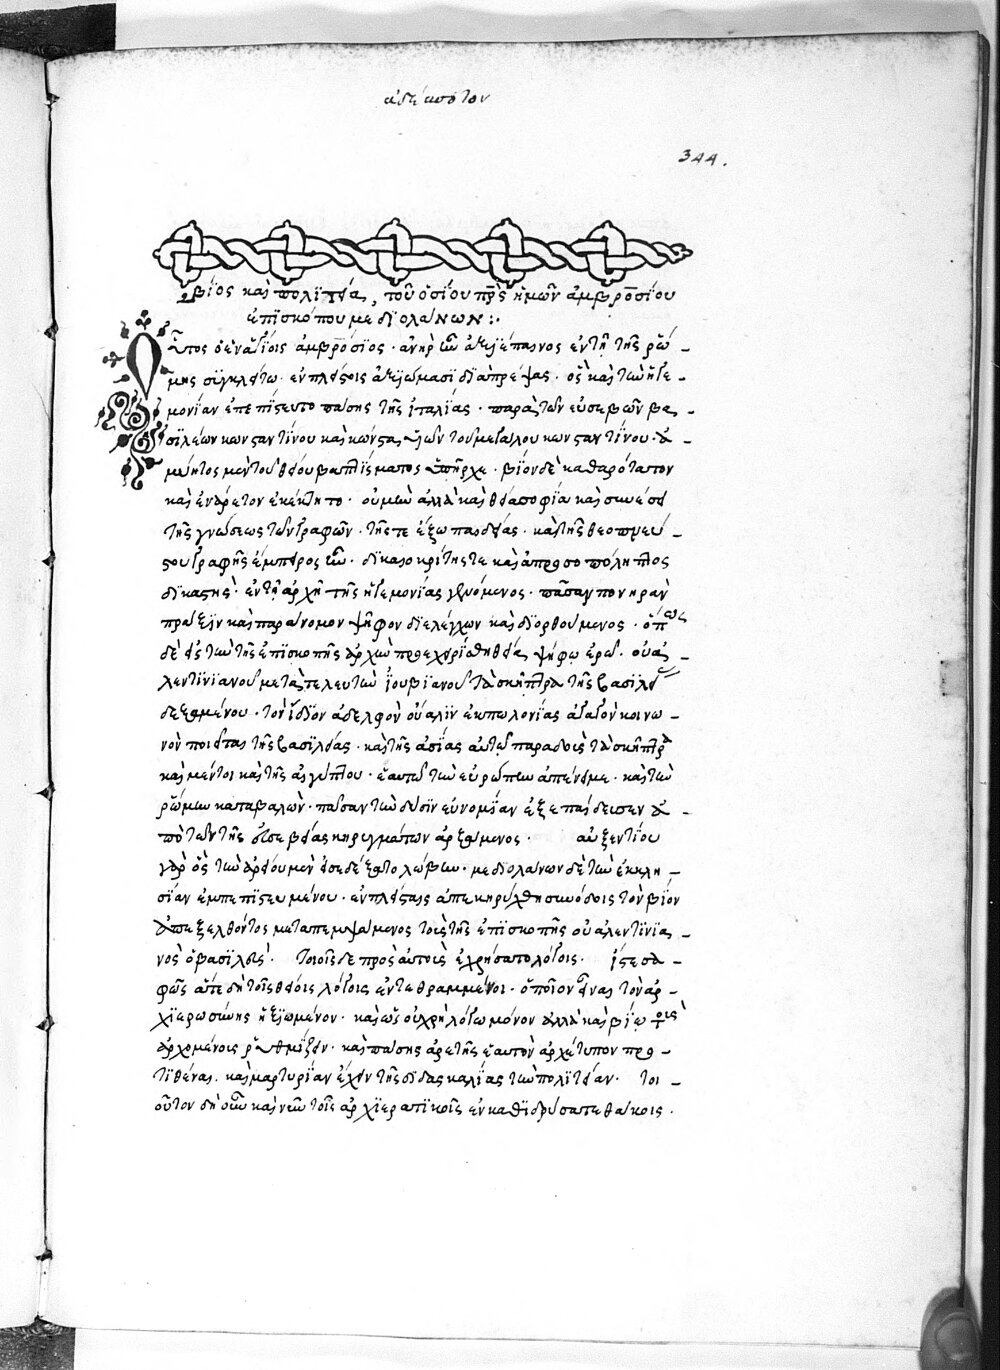 ἀδέσποτον
344.
βίος καὶ πολιτεία, τοῦ ὁσίου πρς ἡμῶν ἀμβροσίου
ἐπισκόπου μεδιολάνων :·
Οὗτος ὁ ἐν ἁγίοις ἀμβρόσιος · ἀνὴρ ὢν ἀξιέπαινος ἐν τῇ τῆς ῥώ -
μης συγκλήτω · ἐν πλείστοις ἀξιώμασι διαπρέψας · ὃς καὶ τὴν ἡγε -
μονίαν ἐπεπίστευτο πάσης τῆς ἰταλίας · παρὰ τῶν εὐσεβῶν βα -
σιλέων κωνσταντίνου καὶ κώνσταντος υἱῶν τοῦ μεγάλου κωνσταντίνου · ἀ
μύητος μὲν τοῦ θείου βαπτίσματος ὑπῆρχε · βίον δὲ καθαρότατον
καὶ ἐνάρετον ἐκέκτητο · οὐ μὴν ἀλλὰ καὶ θεία σοφία καὶ συνέσει
τῆς γνώσεως τῶν γραφῶν · τῆς τε ἔξω παιδείας · καὶ τῆς θεοπνεύ -
στου γραφῆς ἔμπειρος ὢν · δικαιοκρίτης τε καὶ ἀπροσωπόληπτος
δικαστὴς · ἐν τῇ ἀρχῇ τῆς ἡγεμονίας γενόμενος · πᾶσαν πονηρὰν
πρᾶξιν καὶ παράνομον ψῆφον διελέγχων καὶ διορθούμενος · ὅπως
δὲ εἰς τὴν τῆς ἐπισκοπῆς ἀρχὴν προεχειρίσθη θεία ψήφω ἐρῶ · οὐα -
λεντινιανοῦ μετὰ τελευτὴν ἰουβιανοῦ τὰ σκῆπτρα τῆς βασιλεί
δεξαμένου · τὸν ἴδιον ἀδελφὸν οὐάλιν ἐκ πωλονίας ἀγαγὸν κοινω -
νὸν ποιεῖται τῆς βασιλείας · καὶ τῆς ἀσίας αὐτῷ παραδοὺς τὰ σκῆπτρα
καὶ μέντοι καὶ τῆς αἰγύπτου · ἑαυτῷ τὴν εὐρώπην ἀπένειμε · καὶ τὴν
ῥώμην καταβαλὼν · πᾶσαν τὴν δύσιν εὐνομίαν ἐξεπαίδευσεν ἀ -
πὸ τῶν τῆς εὐσεβείας κηρυγμάτων ἀρξάμενος · αὐξεντίου
γὰρ ὃς τὴν ἀρείου μὲν εἰσεδέξατο λώβην · μεδιολάνων δὲ τὴν ἐκκλη -
σίαν ἐμπεπιστευμένου · ἐν πλείσταις ἀπεκηρύχθη συνόδοις τὸν βίον
ὑπεξελθόντος μεταπεμψάμενος τοὺς τῆς ἐπισκοπῆς οὐαλεντινια -
νὸς ὁ βασιλεὺς · τοιοῖσδε πρὸς αὐτοὺς ἐχρήσατο λόγοις · ἴστε σα -
φῶς ἅτε δὴ τοῖς θείοις λόγοις ἐντεθραμμένοι · ὁποῖον εἶναι τὸν ἀρ -
χιερωσύνης ἠξιωμένον · καὶ ὡς οὐ χρὴ λόγω μόνον ἀλλὰ καὶ βίω τοὺς
ἀρχομένοις ῥυθμίζειν · καὶ πάσης ἀρετῆς ἑαυτὸν ἀρχέτυπον προ -
τιθέναι · καὶ μαρτυρίαν ἔχειν τῆς διδασκαλίας τὴν πολιτείαν · τοι -
οῦτον δὴ οὖν καὶ νῦν τοῖς ἀρχιερατικοῖς ἐνκαθιδρύσατε θώκοις ·